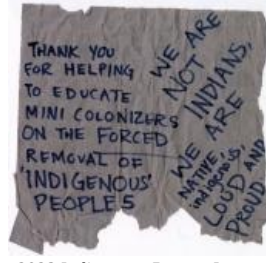 THANK YOU
FOR HELPING
TO EDUCATE
MINI COLONIZERS
ON THE FORCED
REMOVAL OF
'INDIGENOUS'
PEOPLES
WE ARE
NOT
INDIANS,
WE ARE
NATIVE,
indigenous,
LOUD AND
PROUD